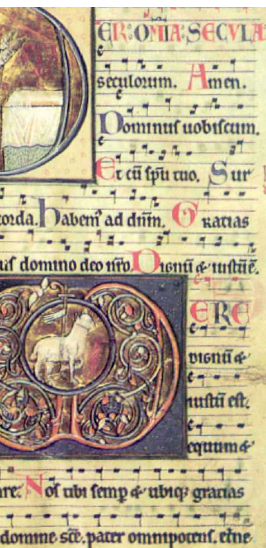 ER: OMIA: SECVLA
seculorum. Amen.
Dominus uobiscum.
Et cū spū tuo. Sur
corda. Habem' ad dn̄m. Gratias
domino deo nr̄o. Dignū & iustū ē.
ERE
dignū &
iustū est.
equum &
are. Nos tibi semp & ubiq; gracias
domine scē, pater omnipotens, etne